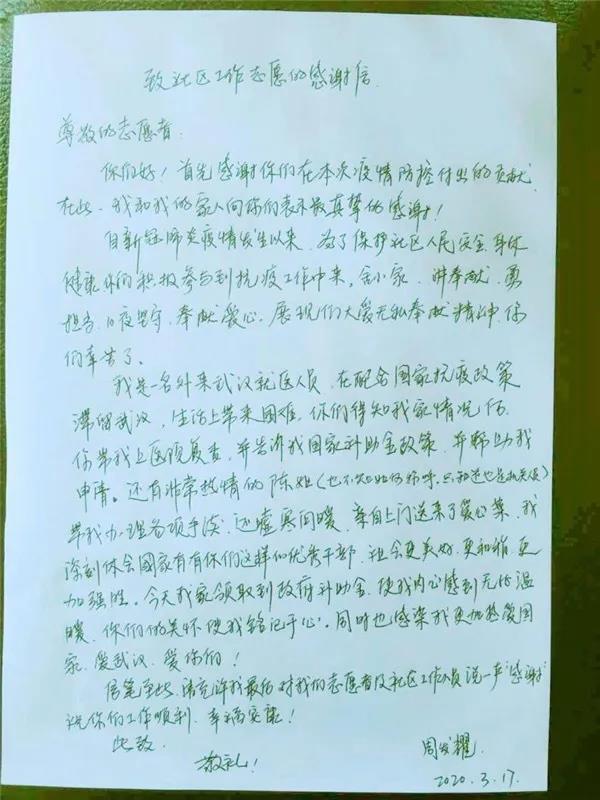 致社区工作志愿的感谢信
尊敬的志愿者:
你们好!首先感谢你们在本次疫情防控付出的贡献,
在此,我和我的家人向你们表示最真挚的感谢!
自新冠肺炎疫情发生以来,为了保护社区人民安全、身体
健康你们积极参与到抗疫工作中来,舍小家、讲奉献、勇
担当、日夜坚守,奉献爱心,展现们大爱无私奉献精神,你
们辛苦了。
我是一名外来武汉就医人员,在配合国家抗疫政策
滞留武汉,生活上带来困难,你们得知我家情况后,
你带我上医院复查,并告诉我国家补助金政策,并帮助我
申请。还有非常热情的陈姐(也不知如何称呼,只知道也是机关人员)
带我办理各项手续,还嘘寒问暖,亲自上门送来了爱心菜,我
深刻体会国家有有你们这样的优秀干部,社会更美好、更和谐、更
加强胜。今天我家领取到政府补助金,使我内心感到无比温
暖、你们的关怀使我铭记于心。同时也感染我更加热爱国
家、爱武汉、爱你们!
信笔至此,请允许我最后对我们志愿者及社区工作人员说一声“感谢”
祝你们工作顺利、幸福安康!
此致
敬礼!
周发耀
2020.3.17.